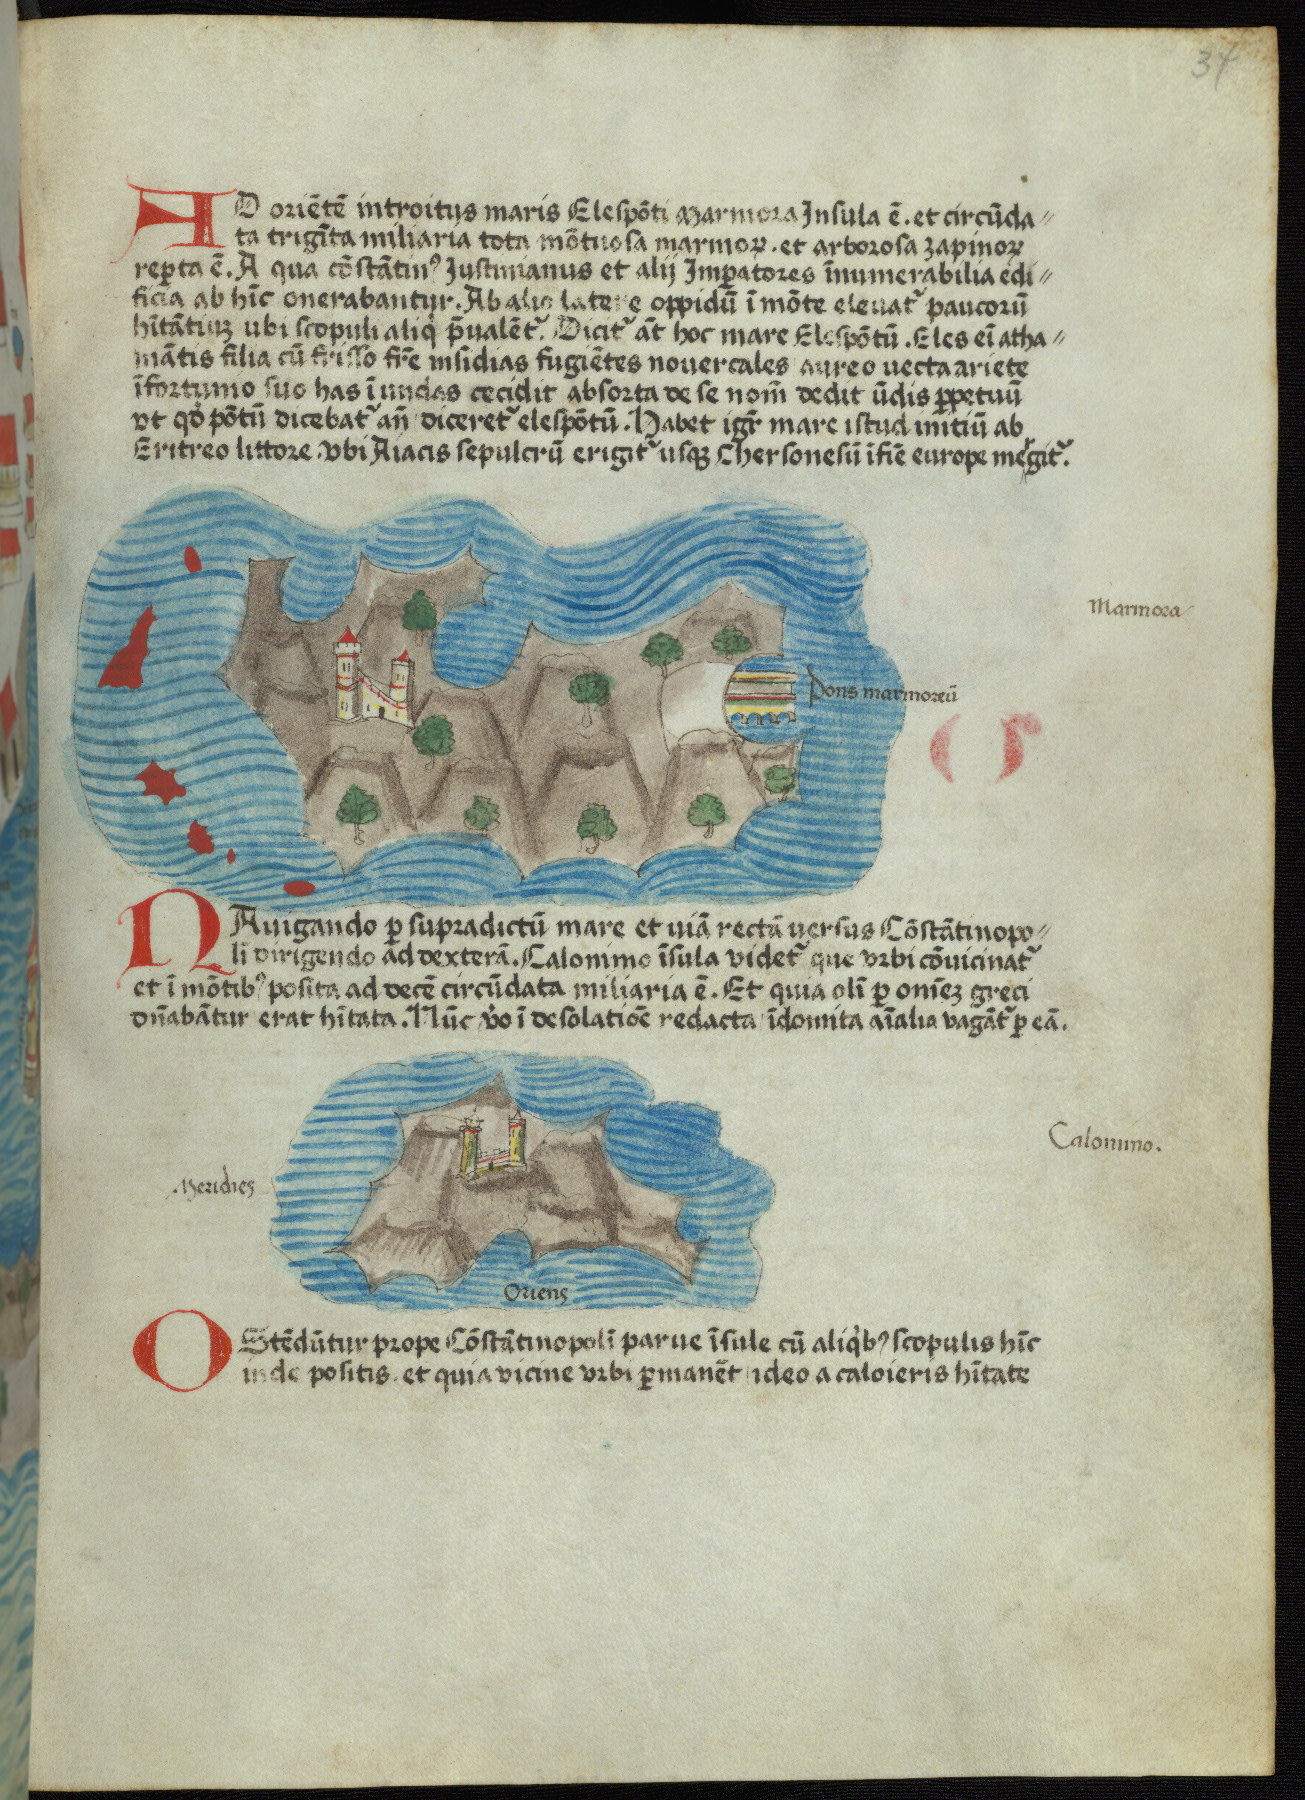 34
AD oriētē introitus maris Elespōti Marmora Insula ē. et circūda⸗
ta trigīta miliaria tota mōtuosa marmoꝝ. et arborosa zapinoꝝ
reꝑta ē. A qua cōstātinꝰ Iustinianus et alij Imꝑatores īnumerabilia edi⸗
ficia ab hīc onerabantur. Ab alio latere oppidū ī mōte eleuat᷑ paucorū
hītātiuꝫ ubi scopuli aliq̇ p̄ualēt᷑. Dicit᷑ āt hoc mare Elespōtū. Eles eī atha⸗
mātis filia cū frisso fr̄e insidias fugiētes nouercales aureo uecta ariete
īfortunio suo has ī undas cecidit absorta de se nom̄ dedit ūdis ꝑpetuū
vt qđ pōtū dicebat᷑ añ diceret᷑ elespōtū. Habet igr̄ mare istud initiū ab
Eritreo littore. vbi Aiacis sepulcrū erigit᷑ usqꝫ Chersonesū ī fiē europe mergit᷑.
Marmora
Pons marmoreū
NAuigando ꝑ supradictū mare et uiā rectā versus Cōstātinopo⸗
lī dirigendo ad dexterā. Calonimo īsula videt᷑ que vrbi cōuicinat᷑
et ī mōtibꝰ posita ad decē circūdata miliaria ē. Et quia olī ꝑ oniēꝫ greci
dn̄abātur erat hītata. Nūc v̊o ī desolatiōē redacta īdomita aīalia vagāt᷑ ꝑ eā.
Calonimo.
Meridies
Oriens
OStēdūtur prope Cōstātinopolī parue īsule cū aliq̇bꝰ scopulis hīc
inde positis. et quia vicine vrbi ꝑmanēt ideo a caloieris hītate